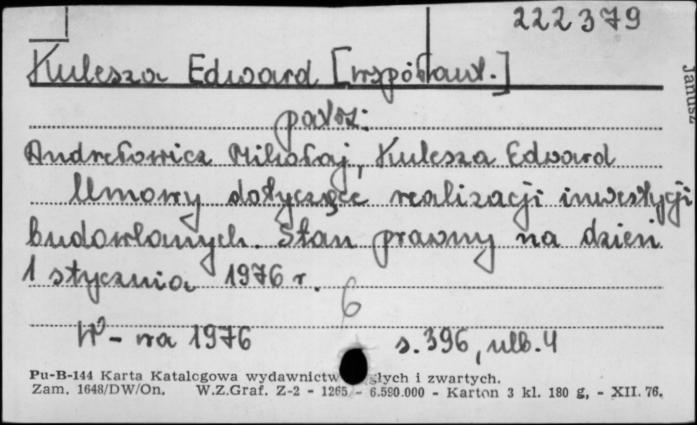 222379
Kulesza Edward [współaut.]
Janusz
patrz:
Andrełowicz Mikołaj, Kulesza Edward
Umowy dotyczące realizacji inwestycji
budowlanych. Stan prawny na dzień
1 stycznia 1976 r.
6
W-wa 1976 s. 396, nlb. 4
Pu-B-144 Karta Katalogowa wydawnictw i zwartych.
Zam. 1648/DW/On. W.Z.Graf. Z-2 - 1265 - 6.590.000 - Karton 3 kl. 180 g, - XII. 76.